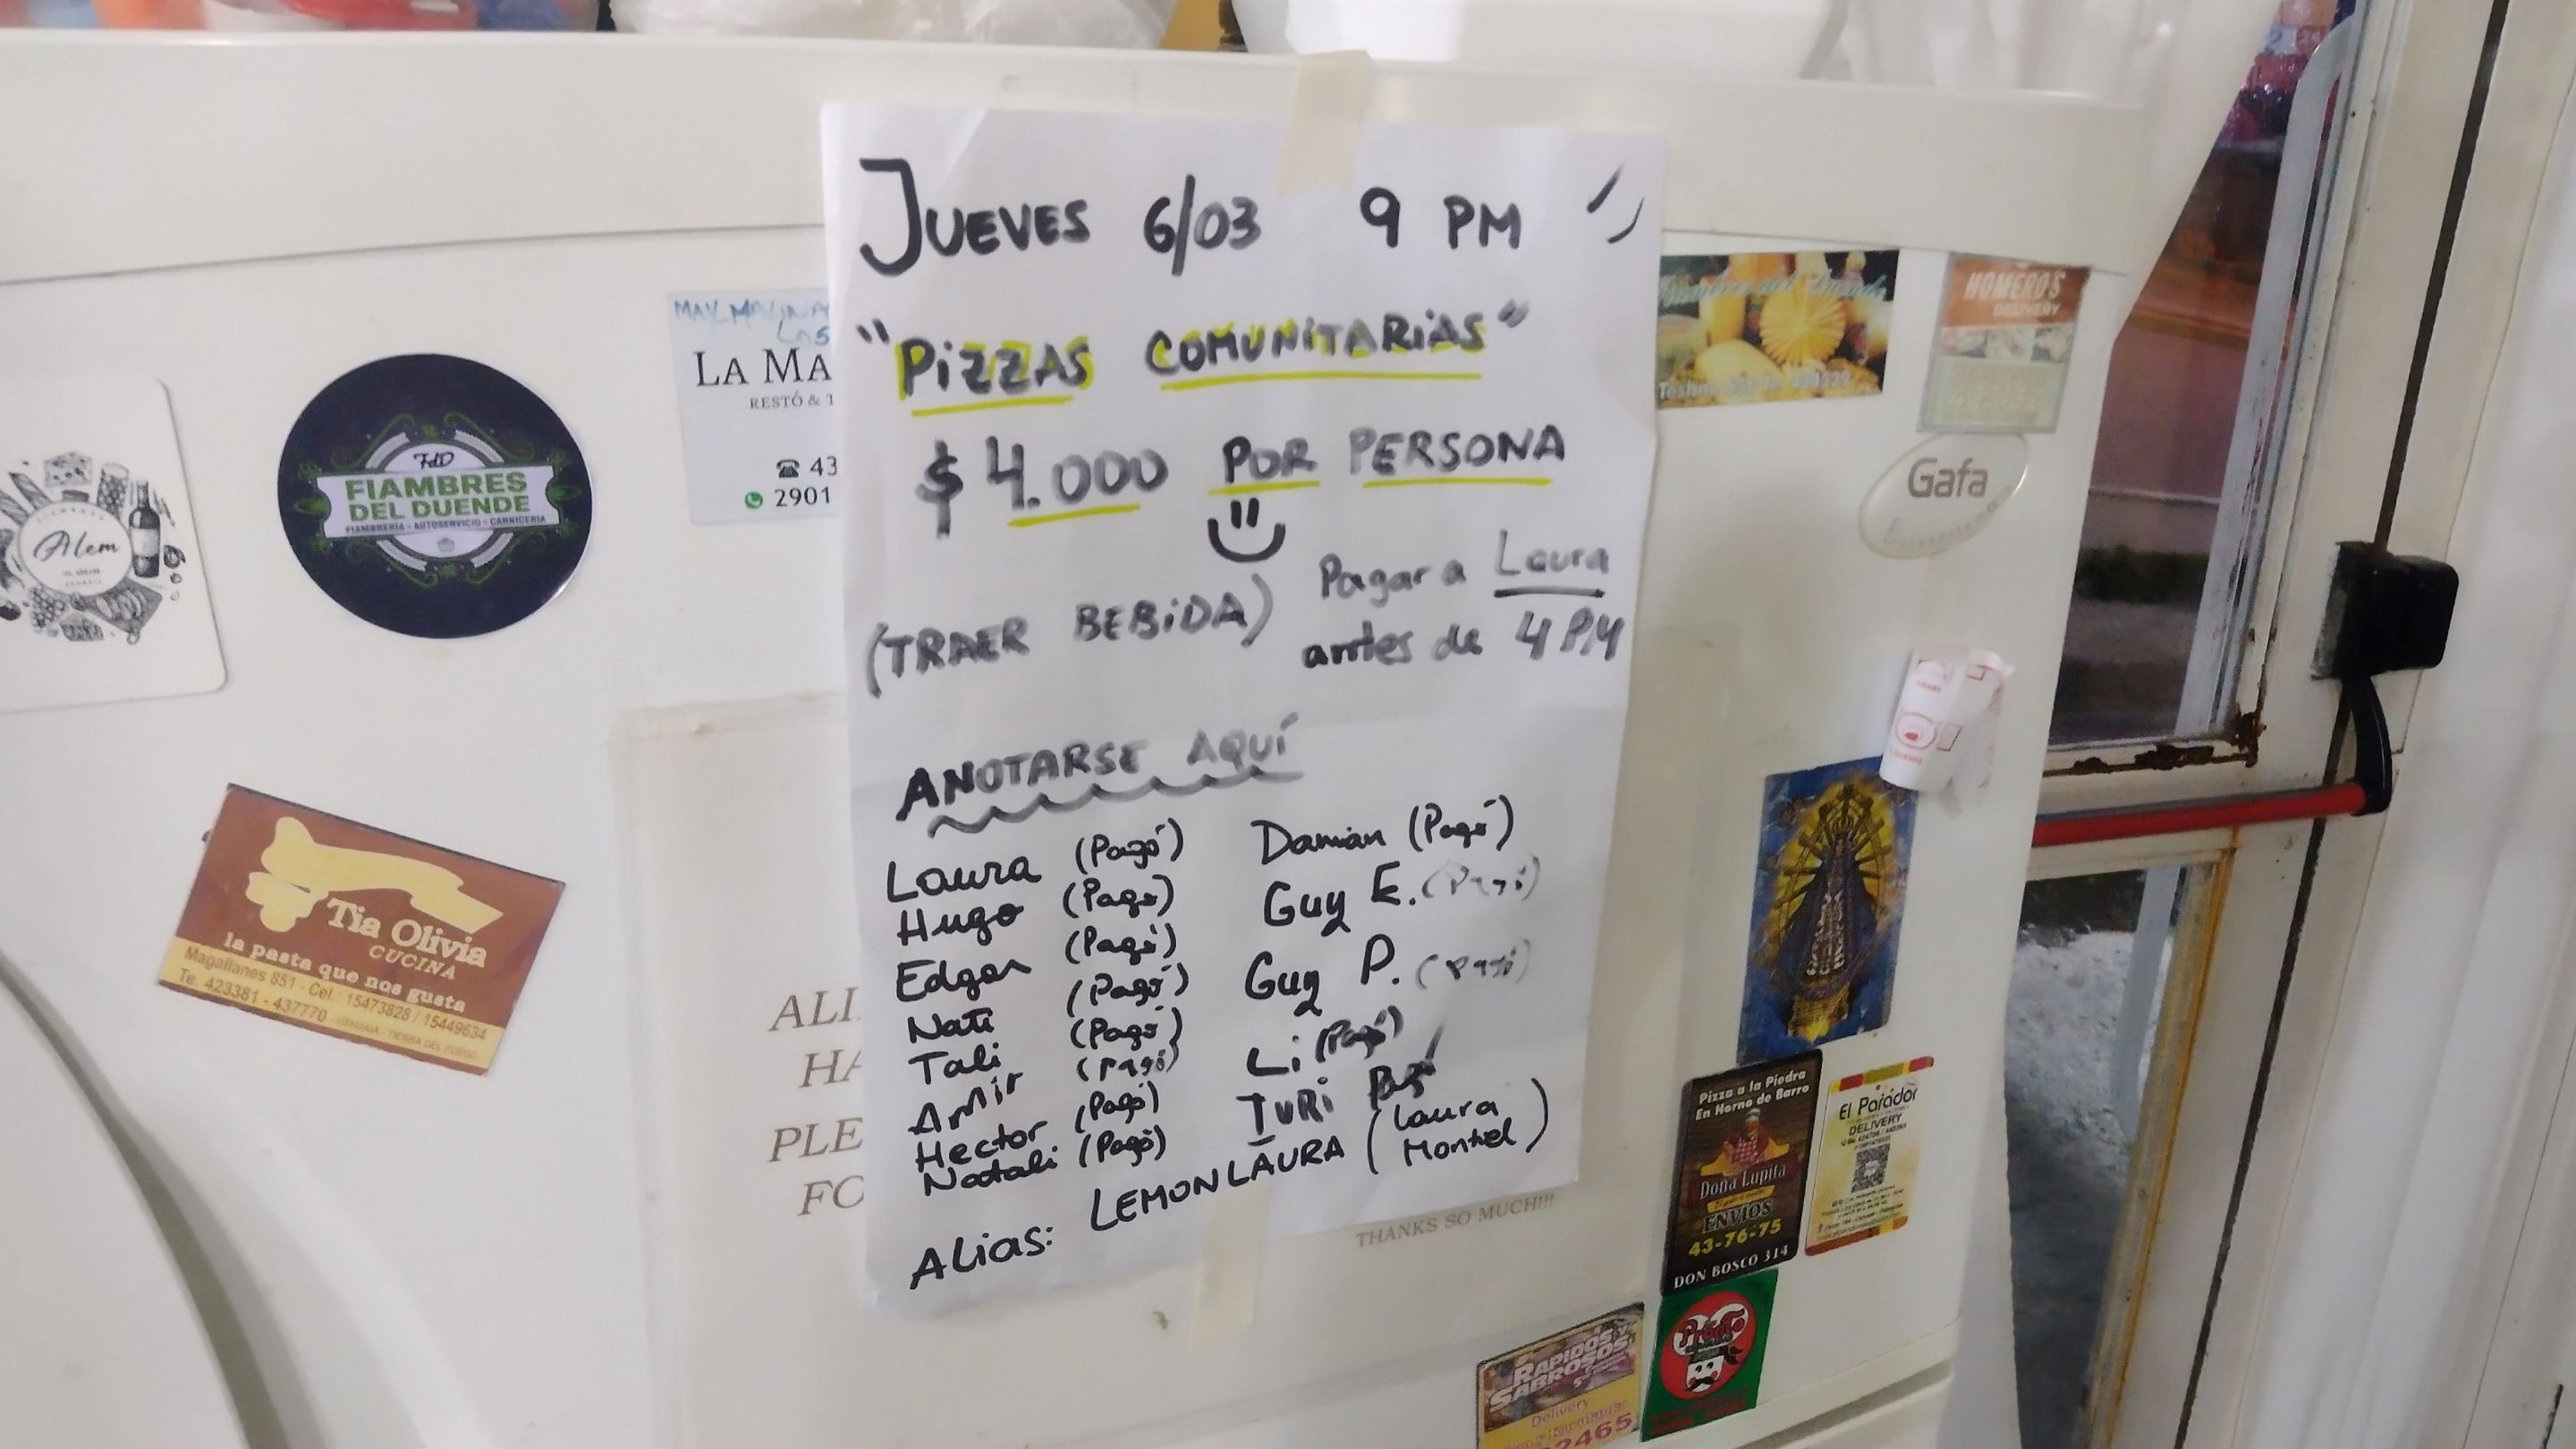 JUEVES 6/03 9 PM
"PiZZAS COMUNITARiAS"
$ 4.000 POR PERSONA
(TRAER BEBiDA) Pagar a Laura
antes de 4 PM
ANOTARSE AQUÍ
Laura (Pagó)
Hugo (Pagó)
Edgar (Pagó)
Nati (Pagó)
Tali (Pagó)
Amir (Pagó)
Hector (Pagó)
Natali (Pagó)
Damián (Pagó)
Guy E. (Pagó)
Guy P. (Pagó)
Li (Pagó)
TURi Pagó
ALias: LEMONLAURA (Laura Montiel)
Alem
FdD
FIAMBRES
DEL DUENDE
FIAMBRERÍA - AUTOSERVICIO - CARNICERIA
LA MA
RESTÓ &
43
2901
Tia Olivia
CUCINA
la pasta que nos gusta
Magallanes 851 - Cel.: 15473828 / 15449634
Te. 423381 - 437770 USHUAIA - TIERRA DEL FUEGO
ALI
HA
PLE
FO
THANKS SO MUCH!!!
HOMERO'S
DELIVERY
Gafa
Pizza a la Piedra
En Horno de Barro
Doña Lupita
ENVIOS
43-76-75
DON BOSCO 314
El Parador
DELIVERY
Pronto
RAPIDOS Y
SABROSOS
Delivery
2465